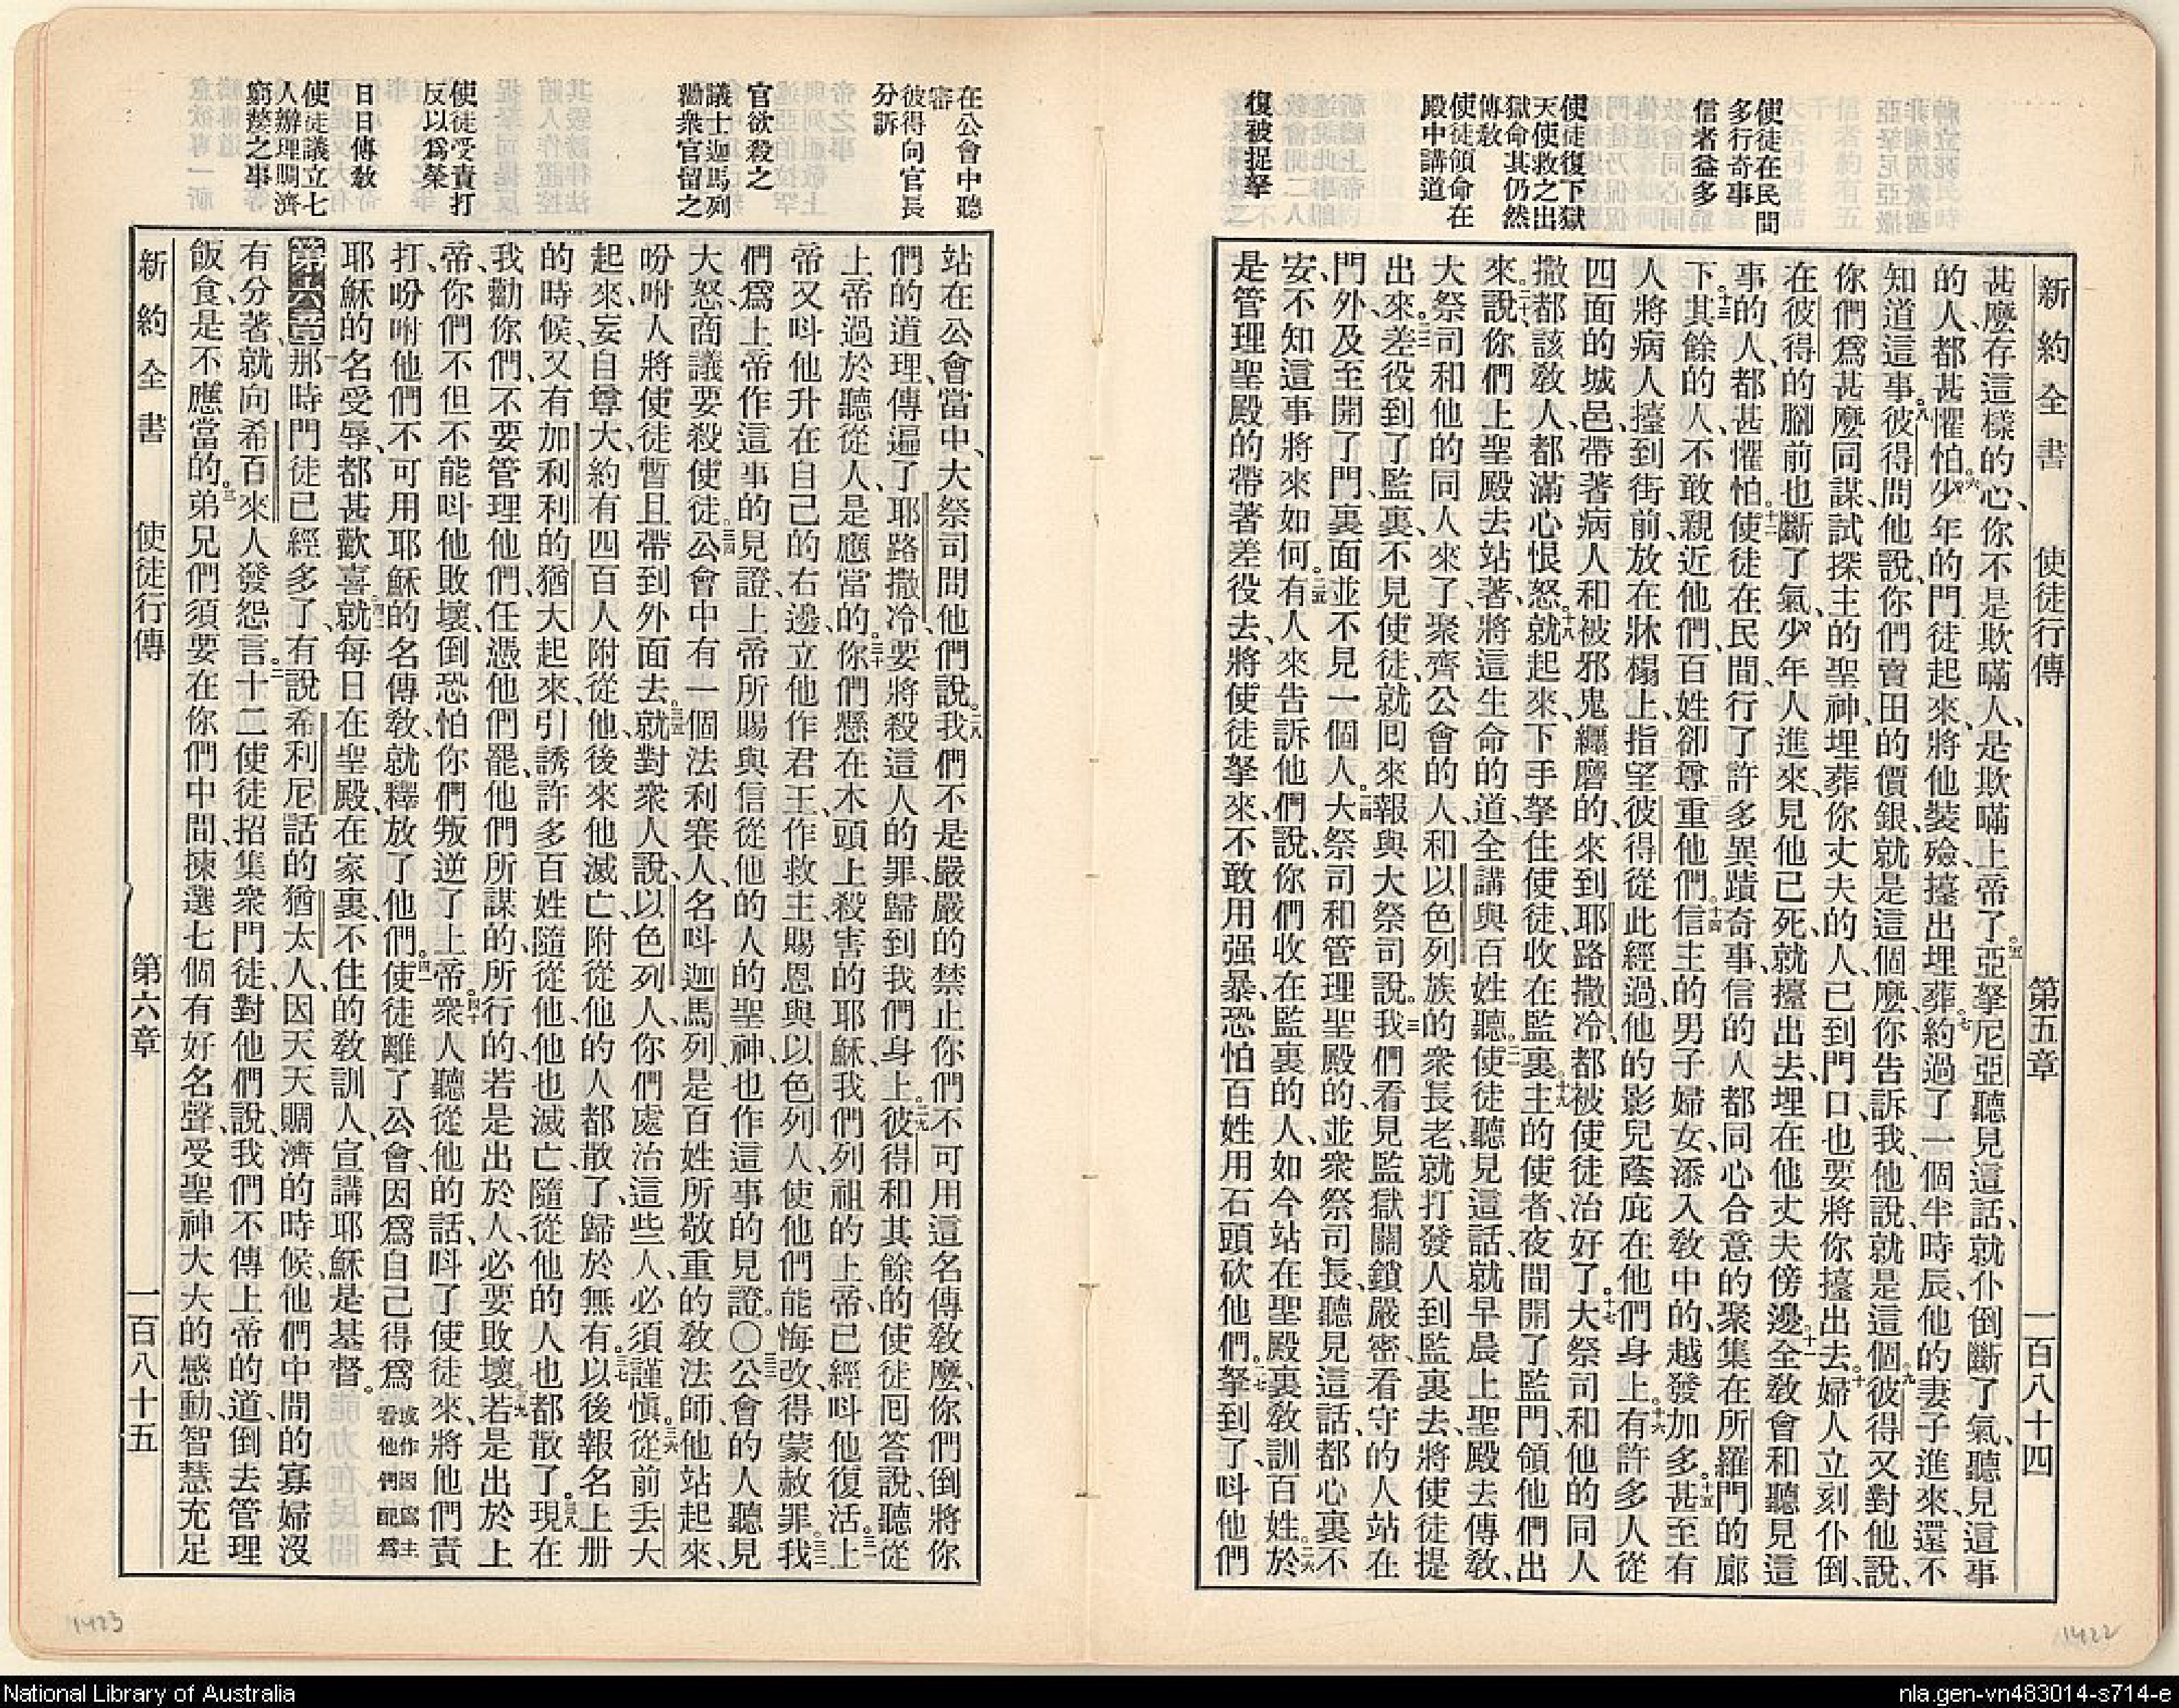 使徒在民間
多行奇事
信者益多
使徒復下獄
天使救之出
獄命其仍然
傳教
使徒領命在
殿中講道
復被捉拏
新約全書 使徒行傳 第五章 一百八十四
甚麼存這樣的心、你不是欺瞞人、是欺瞞上帝了。五亞拏尼亞聽見這話、就仆倒斷了氣、聽見這事
的人、都甚懼怕。六少年的門徒起來、將他裝殮、擡出埋葬。七約過了一個半時辰、他的妻子進來、還不
知道這事。八彼得問他說、你們賣田的價銀、就是這個麼、你告訴我、他說、就是這個。九彼得又對他說、
你們爲甚麼同謀、試探主的聖神、埋葬你丈夫的人、已到門口、也要將你擡出去。十婦人立刻仆倒、
在彼得的腳前、也斷了氣、少年人進來、見他已死、就擡出去、埋在他丈夫傍邊。十一全教會和聽見這
事的人、都甚懼怕。十二使徒在民間、行了許多異蹟奇事、信的人都同心合意的聚集在所羅門的廊
下。十三其餘的人、不敢親近他們、百姓卻尊重他們。十四信主的男子婦女、添入教中的、越發加多。十五甚至有
人將病人擡到街前、放在牀榻上、指望彼得從此經過、他的影兒蔭庇在他們身上。十六有許多人從
四面的城邑、帶著病人和被邪鬼纏磨的、來到耶路撒冷、都被使徒治好了。十七大祭司和他的同人
撒都該教人、都滿心恨怒。十八就起來、下手拏住使徒、收在監裏。十九主的使者、夜間開了監門、領他們出
來說、二十你們上聖殿去站著、將這生命的道、全講與百姓聽。二一使徒聽見這話、就早晨上聖殿去傳教、
大祭司和他的同人來了、聚齊公會的人、和以色列族的衆長老、就打發人到監裏去、將使徒提
出來。二二差役到了監裏、不見使徒、就回來報與大祭司說。二三我們看見監獄關鎖嚴密、看守的人站在
門外、及至開了門、裏面並不見一個人。二四大祭司和管理聖殿的、並衆祭司長、聽見這話、都心裏不
安、不知這事將來如何。二五有人來告訴他們說、你們收在監裏的人、如今站在聖殿裏教訓百姓。二六於
是管理聖殿的帶著差役去、將使徒拏來、不敢用强暴、恐怕百姓用石頭砍他們。二七拏到了、呌他們
在公會中聽
審
彼得向官長
分訴
官欲殺之
議士迦馬列
勸衆官留之
使徒受責打
反以爲榮
日日傳教
使徒議立七
人辦理賙濟
窮嫠之事
站在公會當中、大祭司問他們說。二八我們不是嚴嚴的禁止你們、不可用這名傳教麼、你們倒將你
們的道理、傳遍了耶路撒冷、要將殺這人的罪歸到我們身上。二九彼得和其餘的使徒回答說、聽從
上帝過於聽從人、是應當的。三十你們懸在木頭上殺害的耶穌、我們列祖的上帝、已經呌他復活。三一上
帝又呌他升在自己的右邊、立他作君王、作救主、賜恩與以色列人、使他們能悔改、得蒙赦罪。三二我
們爲上帝作這事的見證、上帝所賜與信從他的人的聖神、也作這事的見證。〇三三公會的人聽見
大怒、商議要殺使徒。三四公會中有一個法利賽人、名呌迦馬列、是百姓所敬重的教法師、他站起來、
吩咐人將使徒暫且帶到外面去。三五就對衆人說、以色列人、你們處治這些人、必須謹愼。三六從前丢大
起來、妄自尊大、約有四百人附從他、後來他滅亡、附從他的人都散了、歸於無有。三七以後報名上册
的時候、又有加利利的猶大起來、引誘許多百姓隨從他、他也滅亡、隨從他的人也都散了。三八現在
我勸你們、不要管理他們、任憑他們罷、他們所謀的、所行的、若是出於人、必要敗壞。三九若是出於上
帝、你們不但不能呌他敗壞、倒恐怕你們叛逆了上帝。四十衆人聽從他的話、呌了使徒來、將他們責
打、吩咐他們不可用耶穌的名傳教、就釋放了他們。四一使徒離了公會、因爲自己得爲 或作因爲主看他們配爲
耶穌的名受辱、都甚歡喜。四二就每日在聖殿、在家裏、不住的教訓人、宣講耶穌是基督。
第六章 一那時門徒已經多了、有說希利尼話的猶太人、因天天賙濟的時候、他們中間的寡婦沒
有分著、就向希百來人發怨言。二十二使徒招集衆門徒、對他們說、我們不傳上帝的道、倒去管理
飯食、是不應當的。三弟兄們須要在你們中間、揀選七個有好名聲、受聖神大大的感動、智慧充足
新約全書 使徒行傳 第六章 一百八十五
1423
1422
National Library of Australia
nla.gen-vn483014-s714-e